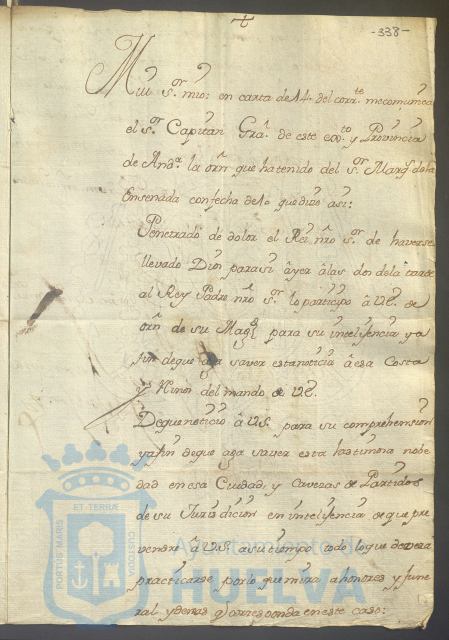 -338-
Mui s.r mio: en carta de 14. del corr.te me comunica
el s.r Capitan Gra.l de este ex.to y Provincia
de And.a la orn que ha tenido del s.r Marq.s de la
Ensenada con fecha de 10 que dize asi:
Penetrado de dolor el Rei nro s.r de haverse
llevado Dios para si âyer âlas dos dela tarde
al Rey Padre nro s.r lo participo â V.E. de
orn de su Mag.d para su inteligencia y a
fin de que aga saver esta noticia â esa Costa
del mando de V.E.
De que noticio â V.S. para su comprehension
ya fin de que aga saver esta lastimosa nobe
dad en esa Ciudad, y Cavezas de Partidos
de su Jurisdicion en inteligencia de que pre
vendre â V.S. a su tiempo todo lo que devera
practicarse por lo que mira a honores y fune
ral y demas q corresponda en este caso:
PORTUS MARIS
ET TERRÆ
CUSTODIA
Ayuntamiento de
HUELVA